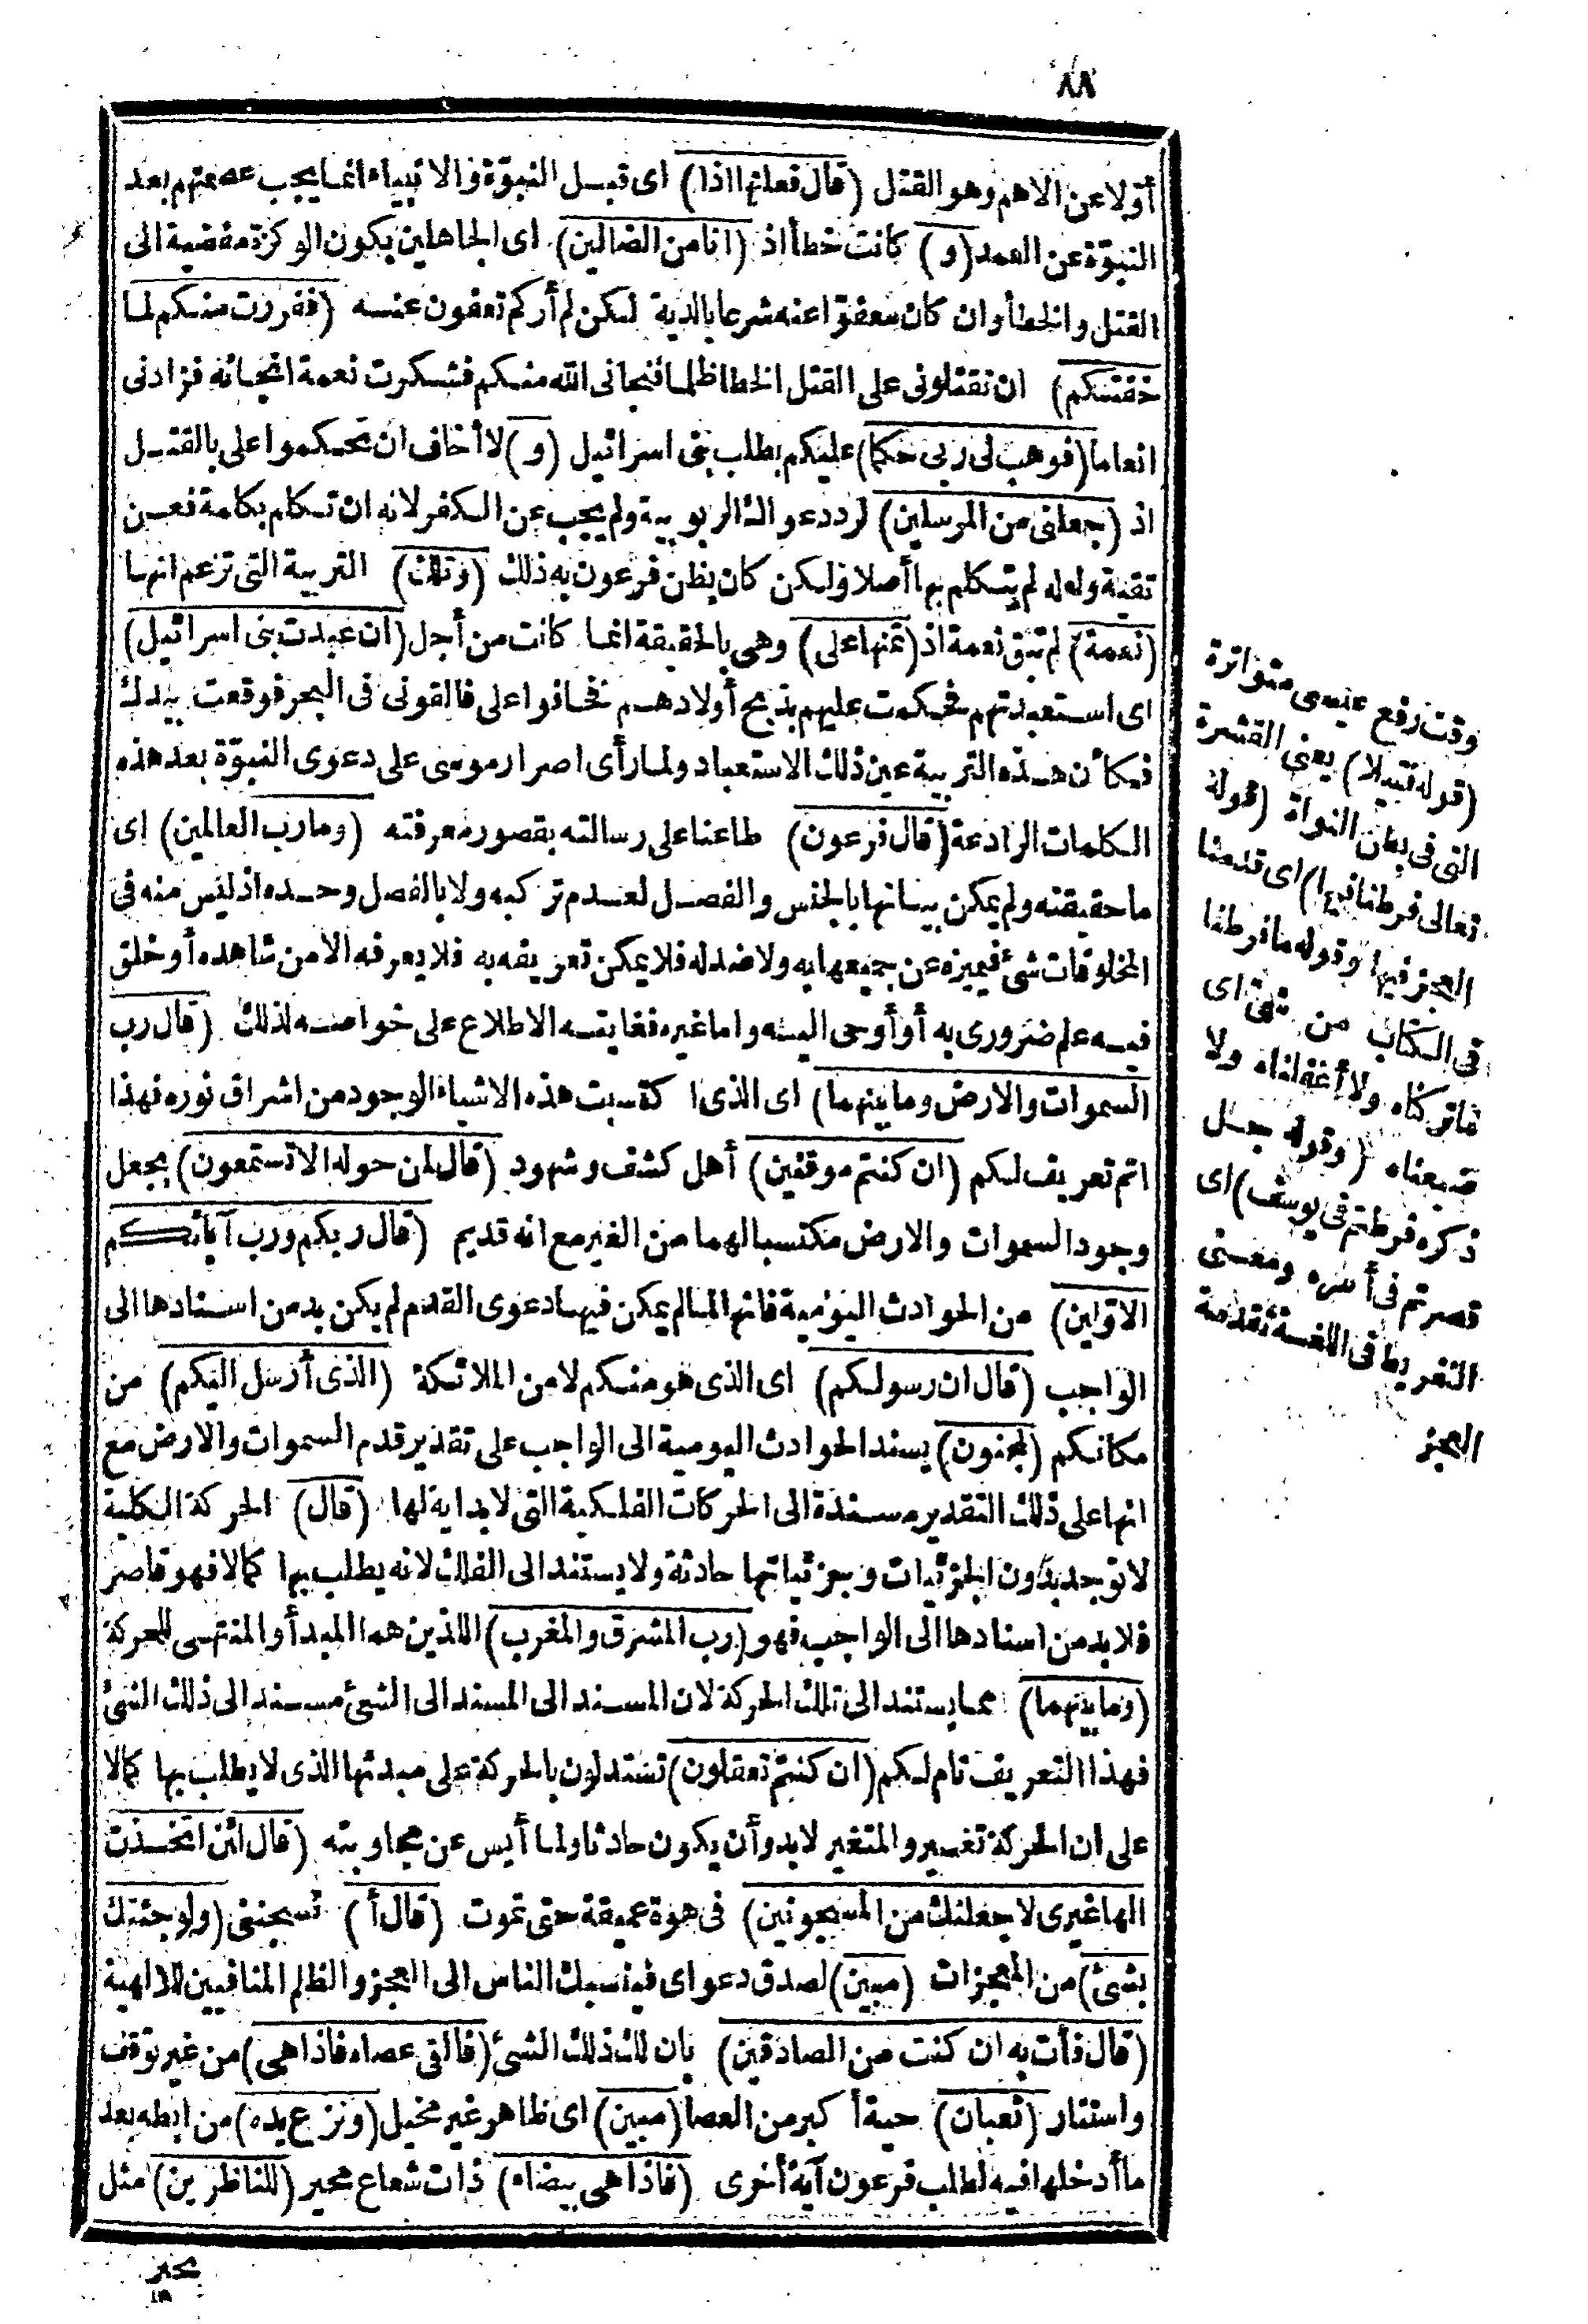 ٨٨
أوّلا عن الاهم وهو القتل (قال فعلتها اذا) اى قبل النبوّة والانبياء انما يجب عصمتهم بعد
النبوّة عن العمد (و) كانت خطأ اذ (انا من الضالين) اى الجاهلين بكون الوكزة مفضية الى
القتل والخطأ وان كان معفوّا عنه شرعا بالدية لكن لم أركم تعفون عنه (ففررت منكم لما
خفتكم) ان تقتلونى على القتل الخطا ظلما فنجانى الله منكم فشكرت نعمة انجائه فزادنى
انعاما (فوهب لى ربى حكما) عليكم بطلب بنى اسرائيل (و) لا أخاف ان تحكموا على بالقتل
اذ (جعلنى من المرسلين) لرد دعواك الربوبية ولم يجب عن الكفر لانه ان تكلم بكلمة فعن
تقية ولعله لم يتكلم بها أصلا ولكن كان يظن فرعون به ذلك (وتلك) التربية التى تزعم انها
(نعمة) لم تبق نعمة اذ (تمنها على) وهى بالحقيقة انما كانت من أجل (ان عبدت بنى اسرائيل)
اى استعبدتهم فحكمت عليهم بذبح أولادهم فخافوا على فالقونى فى البحر فوقعت بيدك
فكأن هذه التربية عين ذلك الاستعباد ولما رأى اصرار موسى على دعوى النبوّة بعد هذه
الكلمات الرادعة (قال فرعون) طاعنا على رسالته بقصور معرفته (وما رب العالمين) اى
ما حقيقته ولم يمكن بيانها بالجنس والفصل لعدم تركبه ولا بالفصل وحده اذ ليس منه فى
المخلوقات شئ فيميزه عن جميعها به ولا ضد له فلا يمكن تعريفه به فلا يعرفه الا من شاهده أو خلق
فيه علم ضرورى به أو أوحى اليه واما غيره فغايته الاطلاع على خواصه لذلك (قال رب
السموات والارض وما بينهما) اى الذى اكتسبت هذه الاشياء الوجود من اشراق نوره فهذا
اتم تعريف لكم (ان كنتم موقنين) أهل كشف وشهود (قال لمن حوله الا تستمعون) بجعل
وجود السموات والارض مكتسبا لهما من الغير مع انه قديم (قال ربكم ورب آبائكم
الاوّلين) من الحوادث اليومية فانها لما لم يمكن فيها دعوى القدم لم يكن بد من اسنادها الى
الواجب (قال ان رسولكم) اى الذى هو منكم لا من الملائكة (الذى أرسل اليكم) من
مكانكم (لمجنون) يسند الحوادث اليومية الى الواجب على تقدير قدم السموات والارض مع
انها على ذلك التقدير مسندة الى الحركات الفلكية التى لا بداية لها (قال) الحركة الكلية
لا توجد بدون الجزئيات وجزئياتها حادثة ولا يستند الى الفلك لانه يطلب بها كمالا فهو قاصر
فلا بد من اسنادها الى الواجب فهو (رب المشرق والمغرب) اللذين هما المبدأ والمنتهى للحركة
(وما بينهما) مما يستند الى تلك الحركة لان المسند الى المسند الى الشئ مسند الى ذلك الشئ
فهذا التعريف تام لكم (ان كنتم تعقلون) تستدلون بالحركة على مبدئها الذى لا يطلب بها كمالا
على ان الحركة تغير والمتغير لا بد وأن يكون حادثا ولما أيس عن مجاوبته (قال لئن اتخذت
الها غيرى لاجعلنك من المسجونين) فى هوة عميقة حتى تموت (قال أ) تسجننى (ولو جئتك
بشئ) من المعجزات (مبين) لصدق دعواى فينسبك الناس الى العجز والظلم المنافيين للالهية
(قال فأت به ان كنت من الصادقين) بان لك ذلك الشئ (فالقى عصاه فاذا هى) من غير توقف
واستتار (ثعبان) حية أكبر من العصا (مبين) اى ظاهر غير مخيل (ونزع يده) من ابطه بعد
ما أدخلها فيه لطلب فرعون آية أخرى (فاذا هى بيضاء) ذات شعاع محير (للناظرين) مثل
وقت رفع عيسى متواترة
(قوله فتيلا) يعنى القشرة
التى فى بطن النواة (قوله
تعالى فرطنا فيها) اى قدمنا
العجز فيها وقوله ما فرطنا
فى الكتاب من شئ اى
ما تركناه ولا أغفلناه ولا
ضيعناه (وقوله جل
ذكره فرطتم فى يوسف) اى
قصرتم فى أمره ومعنى
التفريط فى اللغة تقدمة
العجز